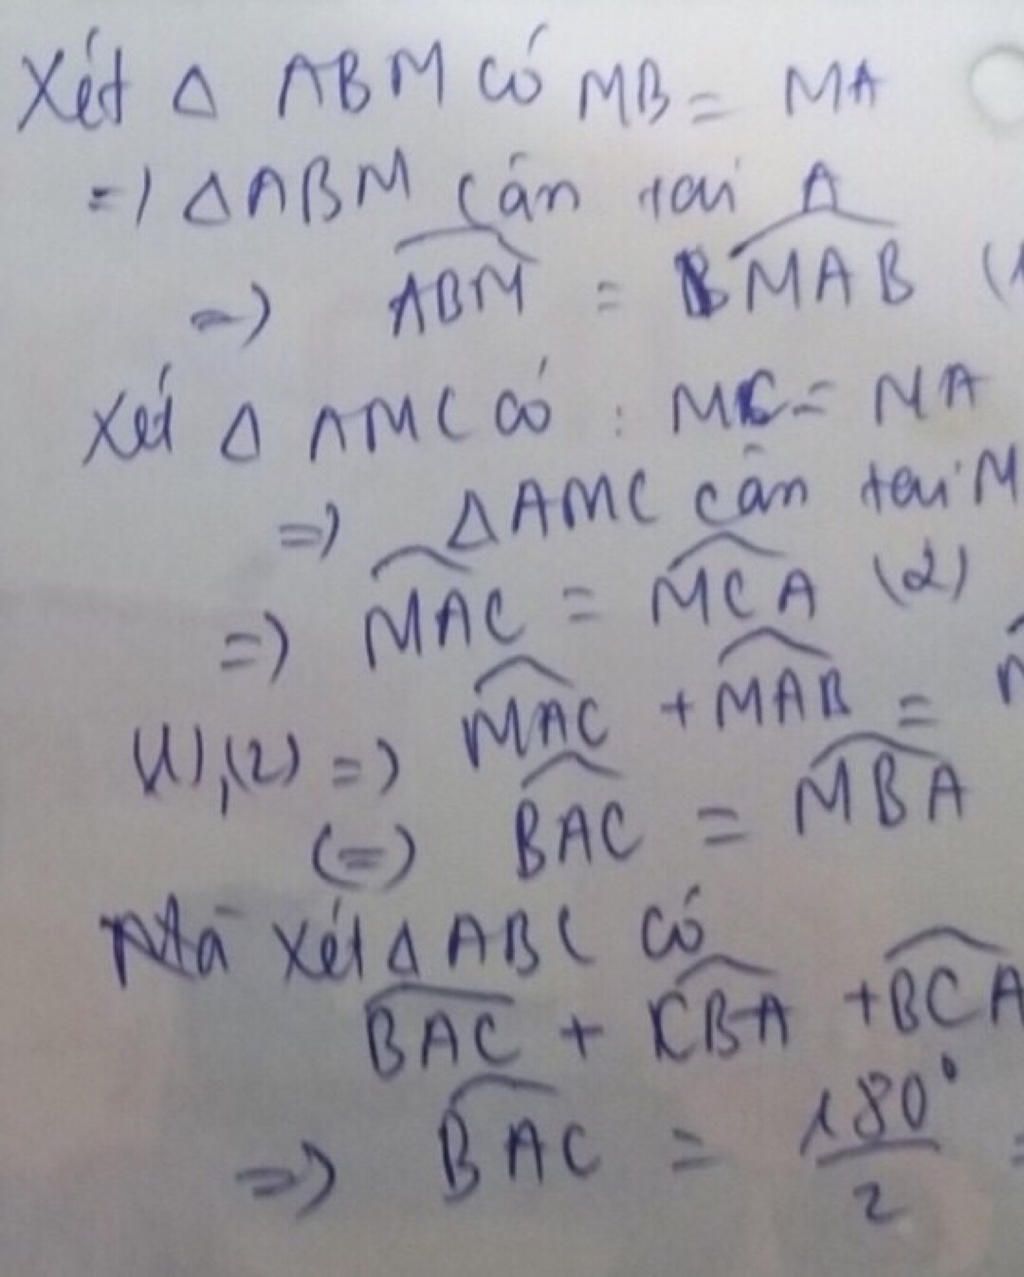 Xét Δ ABM có MB = MA
=) ΔABM cân tại A
=) ABM = MAB (1
Xét Δ AMC có : MC = MA
=) ΔAMC cân tại M
=) MAC = MCA (2)
(1),(2) =) MAC + MAB =
(=) BAC = MBA
Mà xét ΔABC có
BAC + CBA + BCA
=) BAC = 180° / 2 =